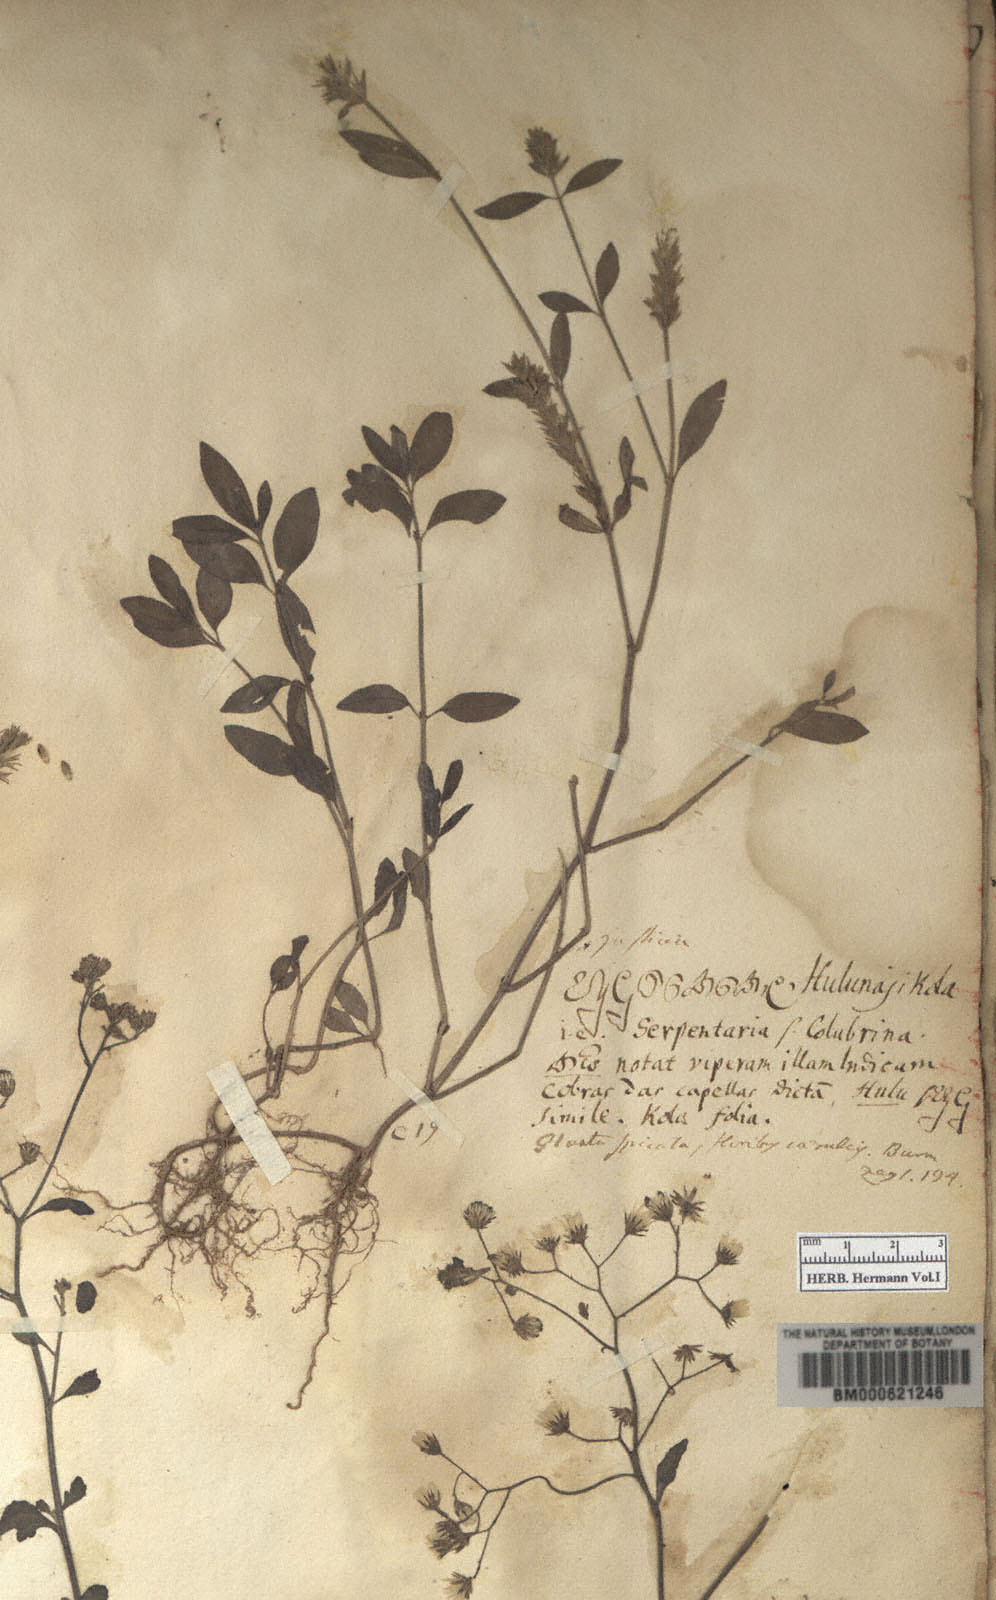 Justicia
Hulunajikola
i.e. Serpentaria s. Colubrina.
notat viperam illam Indicam
Cobras das capellas dictã, Hulu
simile. Kola folia.
C 19
Planta spicata, floribus caeruleis. Burm
zeyl. 194.
mm 1 2 3
HERB. Hermann Vol.I
THE NATURAL HISTORY MUSEUM,LONDON
DEPARTMENT OF BOTANY
BM000621246